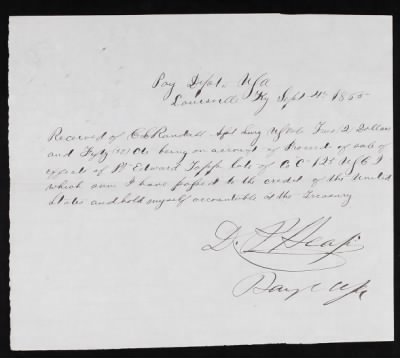 Pay Dept. USA
Louisville Ky Sept 4th 1865
Received of C C Randall Asst Surg Two (2) Dollars
and Fifty Cts being on account of Proceeds of sale of
effects of Pt Edward Tapp late of Co C
which sum I have passed to the credit of the United
States and hold myself accountable at the Treasury
D.
Paymr USA